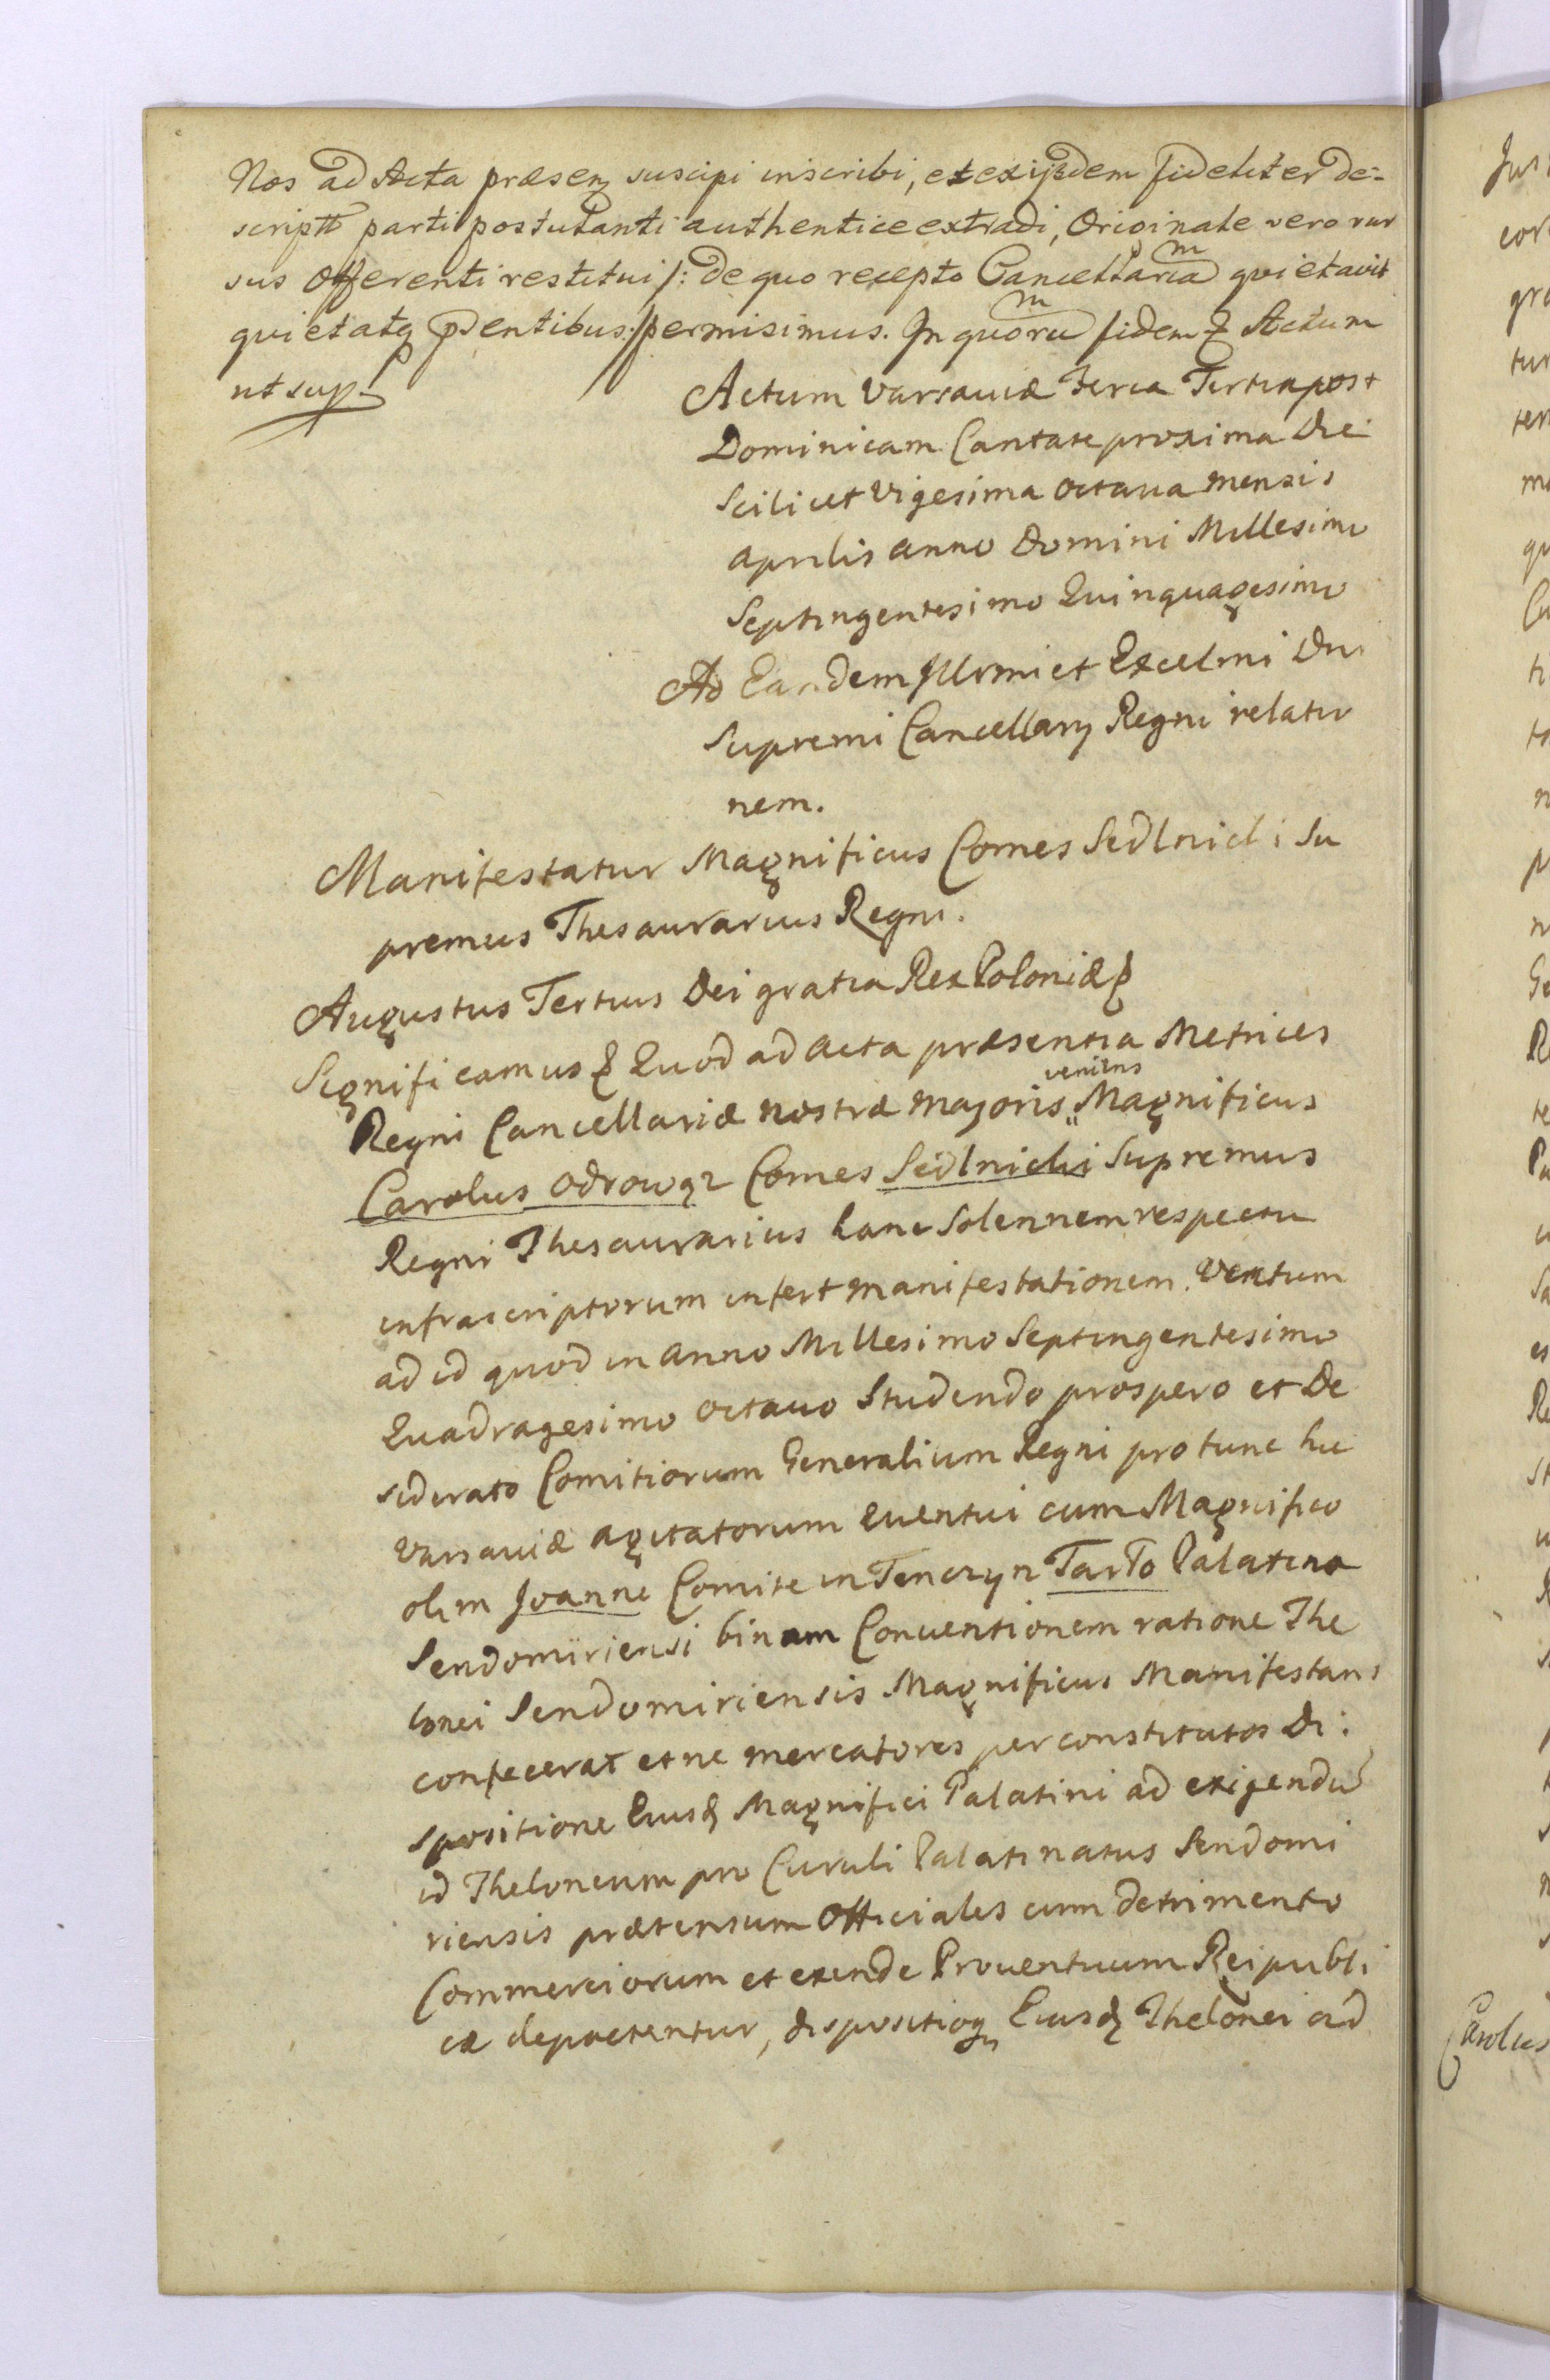 Nos ad Acta præsenz suscipi inscribi, et ex ijsdem fideliter de=
scriptt parti postulanti authentice extradi, Originale vero rur
sus offerenti restitui /: de quo recepto Cancellariam quietavit
quietatq pdentibus :/ permisimus. In quorum fidem Actum
ut sup.
Actum Varsaviæ Feria Tertia post
Dominicam Cantate proxima Die
Scilicet Vigesima octava mensis
Aprilis anno Domini Millesimo
Septingentesimo Quinquagesimo
Ad Eandem Illrmi et Excelmi Dni
Supremi Cancellarij Regni relatio
nem.
Manifestatur Magnificus Comes Sedlnicki Su
premus Thesaurarius Regni.
Augustus Tertius Dei gratia Rex Poloniæ
Significamus Quod ad acta præsentia Metrices
Regni Cancellariæ nostræ majoris veniens Magnificus
Carolus Odrowąz Comes Sedlnicki Supremus
Regni Thesaurarius hanc Solennem respectu
infrascriptorum infert manifestationem. Ventum
ad id quod in anno Millesimo Septingentesimo
Quadragesimo octavo Studendo prospero et De
siderato Comitiorum Generalium Regni pro tunc hic
Varsaviæ agitatorum eventui cum Magnifico
olim Joanne Comite in Tenczyn Tarło Palatino
Sendomiriensi binam Conventionem ratione The
lonei Sendomiriensis Magnificus Manifestans
confecerat et ne mercatores per constitutos Di:
spositione Eiusd Magnifici Palatini ad exigendū
id Theloneum pro Curuli Palatinatus Sendomi
riensis prætensum Officiales cum detrimento
Commerciorum et exinde Proventuum Reipubli
cæ depactentur, dispositioq Eiusd Thelonei ad
Carolus